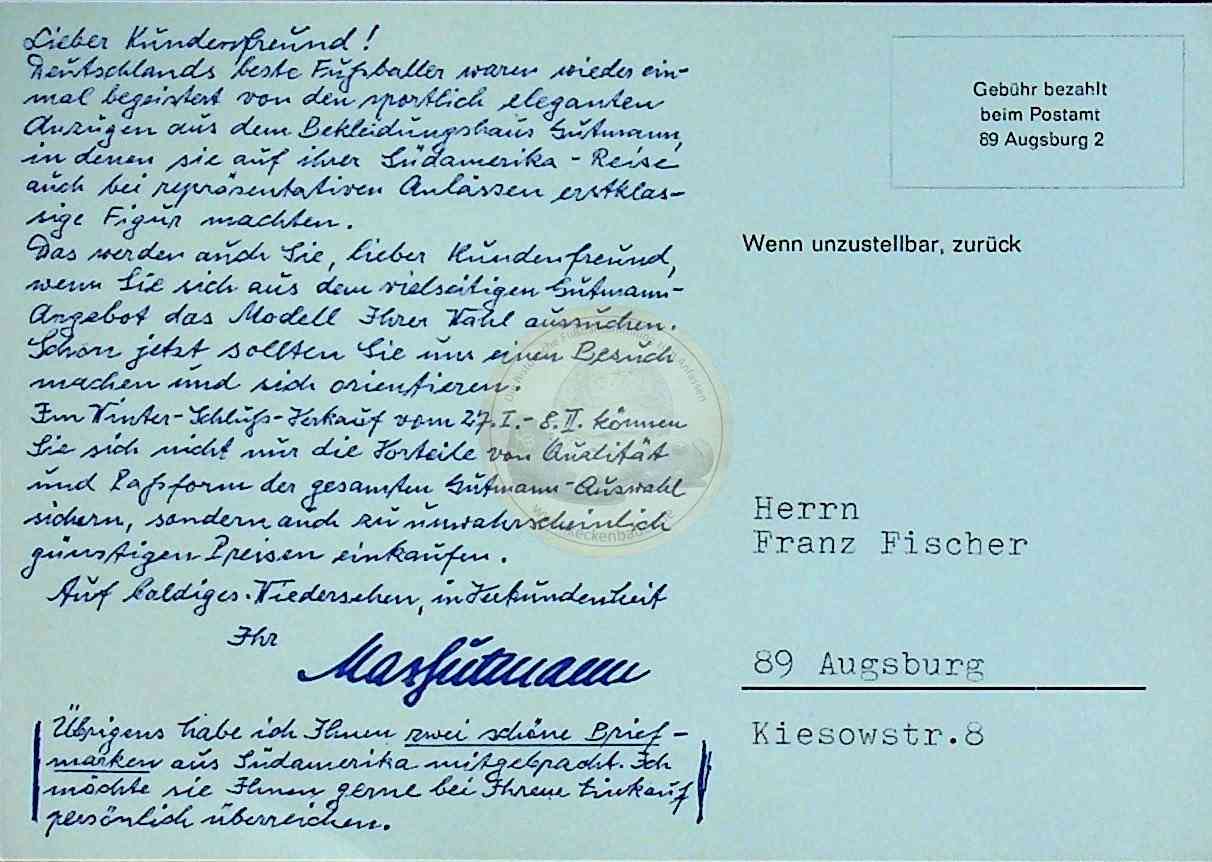 Lieber Kundenfreund!
Deutschlands beste Fußballer waren wieder ein-
mal begeistert von den sportlich eleganten
Anzügen aus dem Bekleidungshaus Gutmann,
in denen sie auf ihrer Südamerika-Reise
auch bei repräsentativen Anlässen erstklas-
sige Figur machten.
Das werden auch Sie, lieber Kundenfreund,
wenn Sie sich aus dem vielseitigen Gutmann-
Angebot das Modell Ihrer Wahl aussuchen.
Schon jetzt sollten Sie uns einen Besuch
machen und sich orientieren.
Im Winter-Schluß-Verkauf vom 27.I.-8.II. können
Sie sich nicht nur die Vorteile von Qualität
und Paßform der gesamten Gutmann-Auswahl
sichern, sondern auch zu unwahrscheinlich
günstigen Preisen einkaufen.
Auf baldiges Wiedersehen, in Verbundenheit
Ihr
Max Gutmann
Übrigens habe ich Ihnen zwei schöne Brief-
marken aus Südamerika mitgebracht. Ich
möchte sie Ihnen gerne bei Ihrem Einkauf
persönlich überreichen.
Gebühr bezahlt
beim Postamt
89 Augsburg 2
Wenn unzustellbar, zurück
Herrn
Franz Fischer
89 Augsburg
Kiesowstr.8